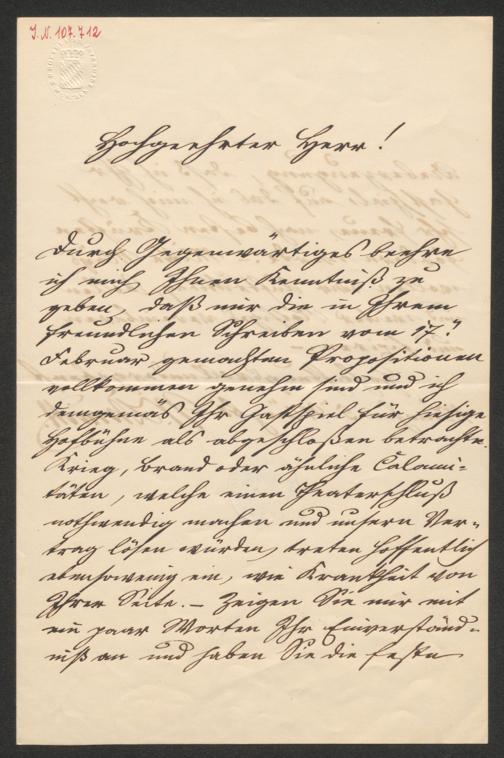 J. N. 107.712
Hochgeehrter Herr!
Durch Gegenwärtiges beehre
ich mich Ihnen Kenntniß zu
geben, daß mir die in Ihrem
freundlichen Schreiben vom 17n
Februar gemachten Propositionen
vollkommen genehm sind und ich
demgemäs Ihr Gastspiel für hiesige
Hofbühne als abgeschloßen betrachte.
Krieg, Brand oder ähnliche Calami-
täten, welche einen Theaterschluß
nothwendig machen und unsern Ver-
trag lösen würden, treten hoffentlich
ebensowenig ein, wie Krankheit von
Ihrer Seite. – Zeigen Sie mir mit
ein paar Worten Ihr Einverständ-
niß an und haben Sie die feste